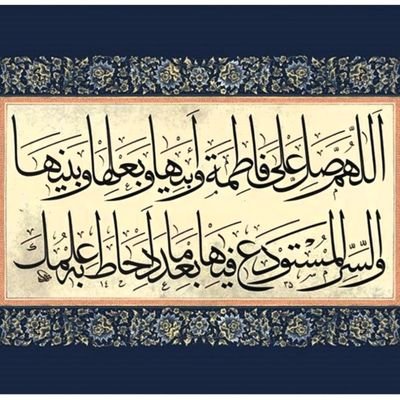 اَللّٰهُمَّ صَلِّ عَلىٰ فَاطِمَةَ وَأَبيهَا وَبَعْلِهَا وَبَنيهَا
وَالسِّرِّ الْمُسْتَوْدَعِ فيهَا بِعَدَدِ مَا أَحَاطَ بِهِ عِلْمُكَ